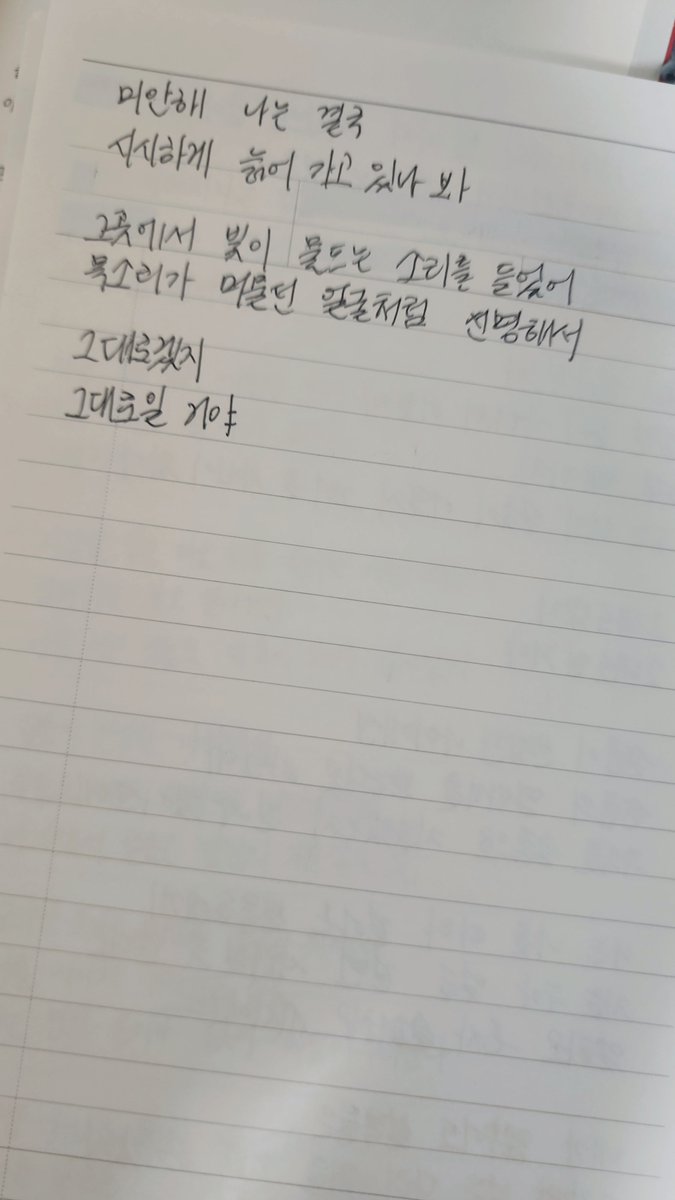 미안해 나는 결국
시시하게 늙어 가고 있나 봐
그곳에서 빛이 물드는 소리를 들었어
목소리가 머물던 얼굴처럼 선명해서
그대로겠지
그대로일 거야